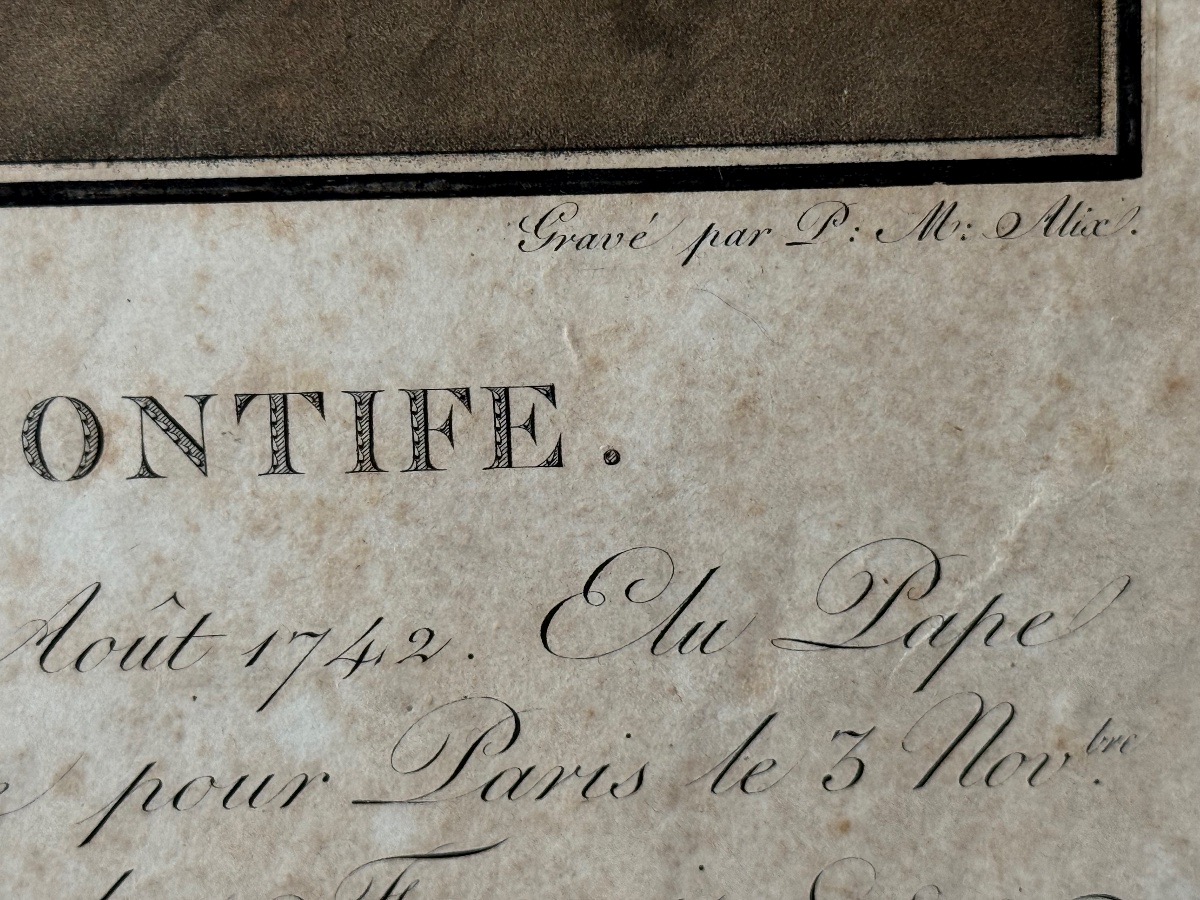 Gravé par P: M: Alix.
ONTIFE.
Août 1742. Elu Pape
pour Paris le 3 Nov.bre